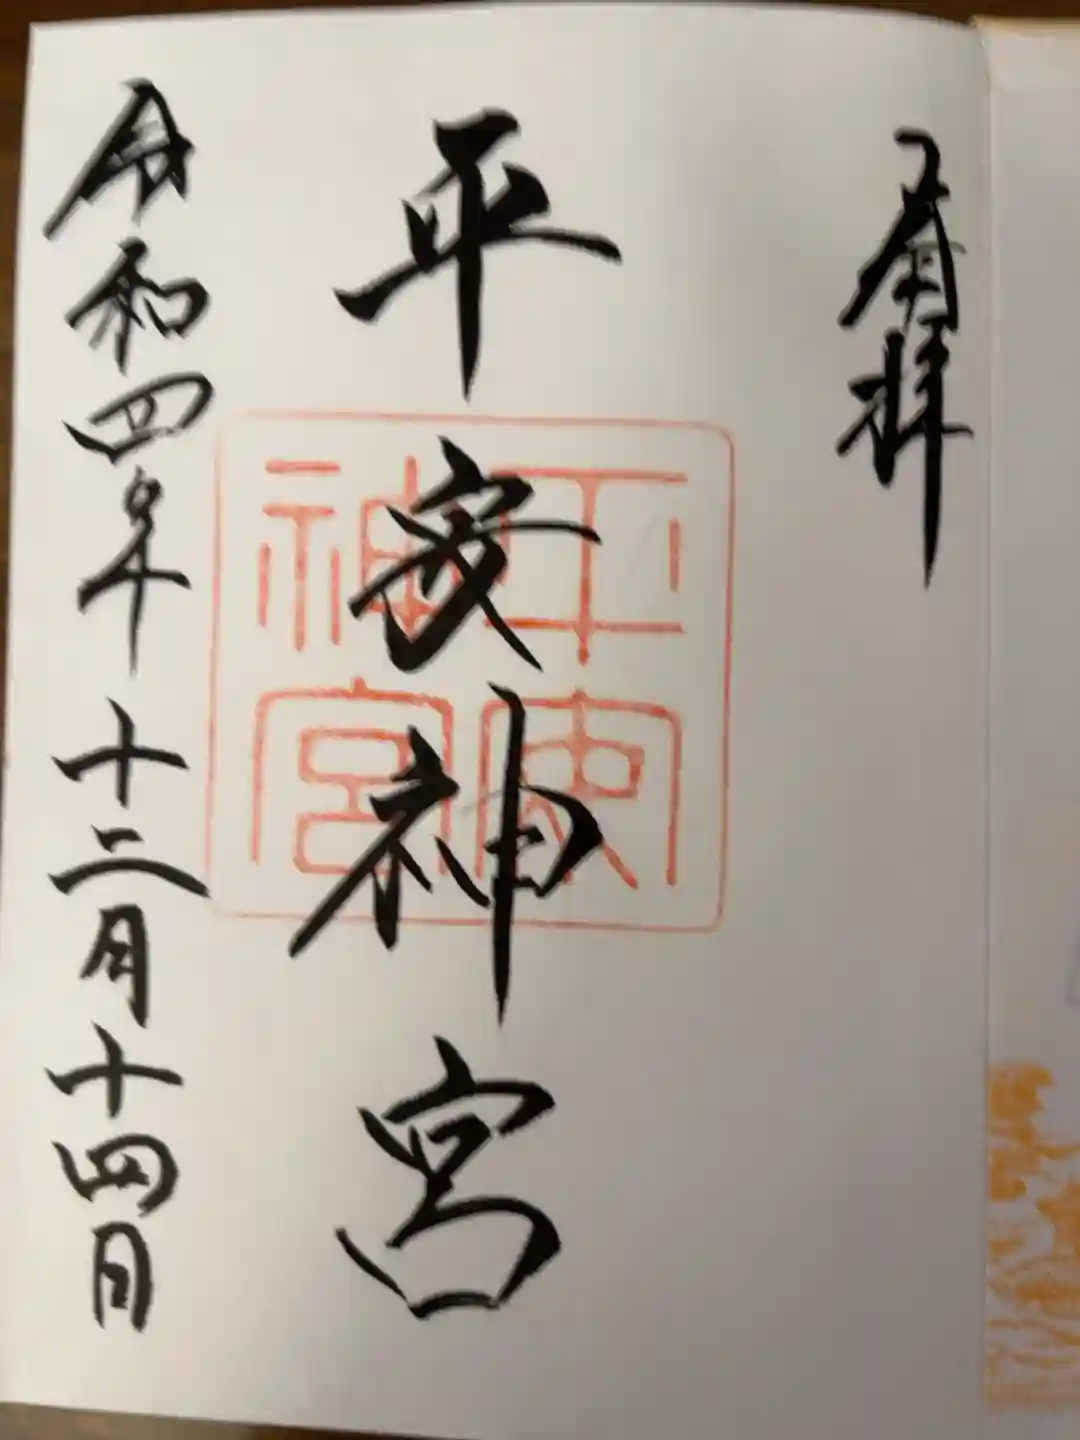 奉拝
平安神宮
平安神宮
令和四年十二月十四日